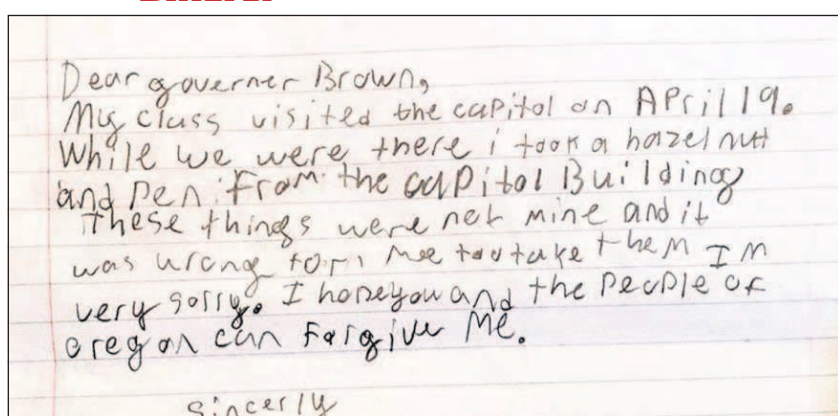 Dear governer Brown,
My class visited the capitol on April 19.
While we were there i took a hazelnutt
and pen from the capitol Building
these things were not mine and it
was wrong for me to take them Im
very sorry. I hope you and the people of
oregon can Forgive Me.
sincerly